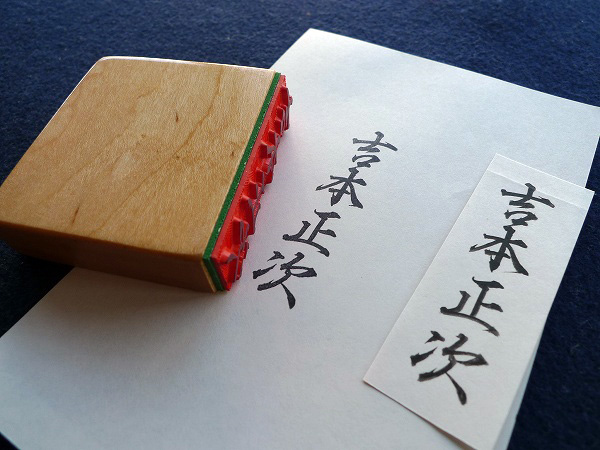 吉本正次
吉本正次